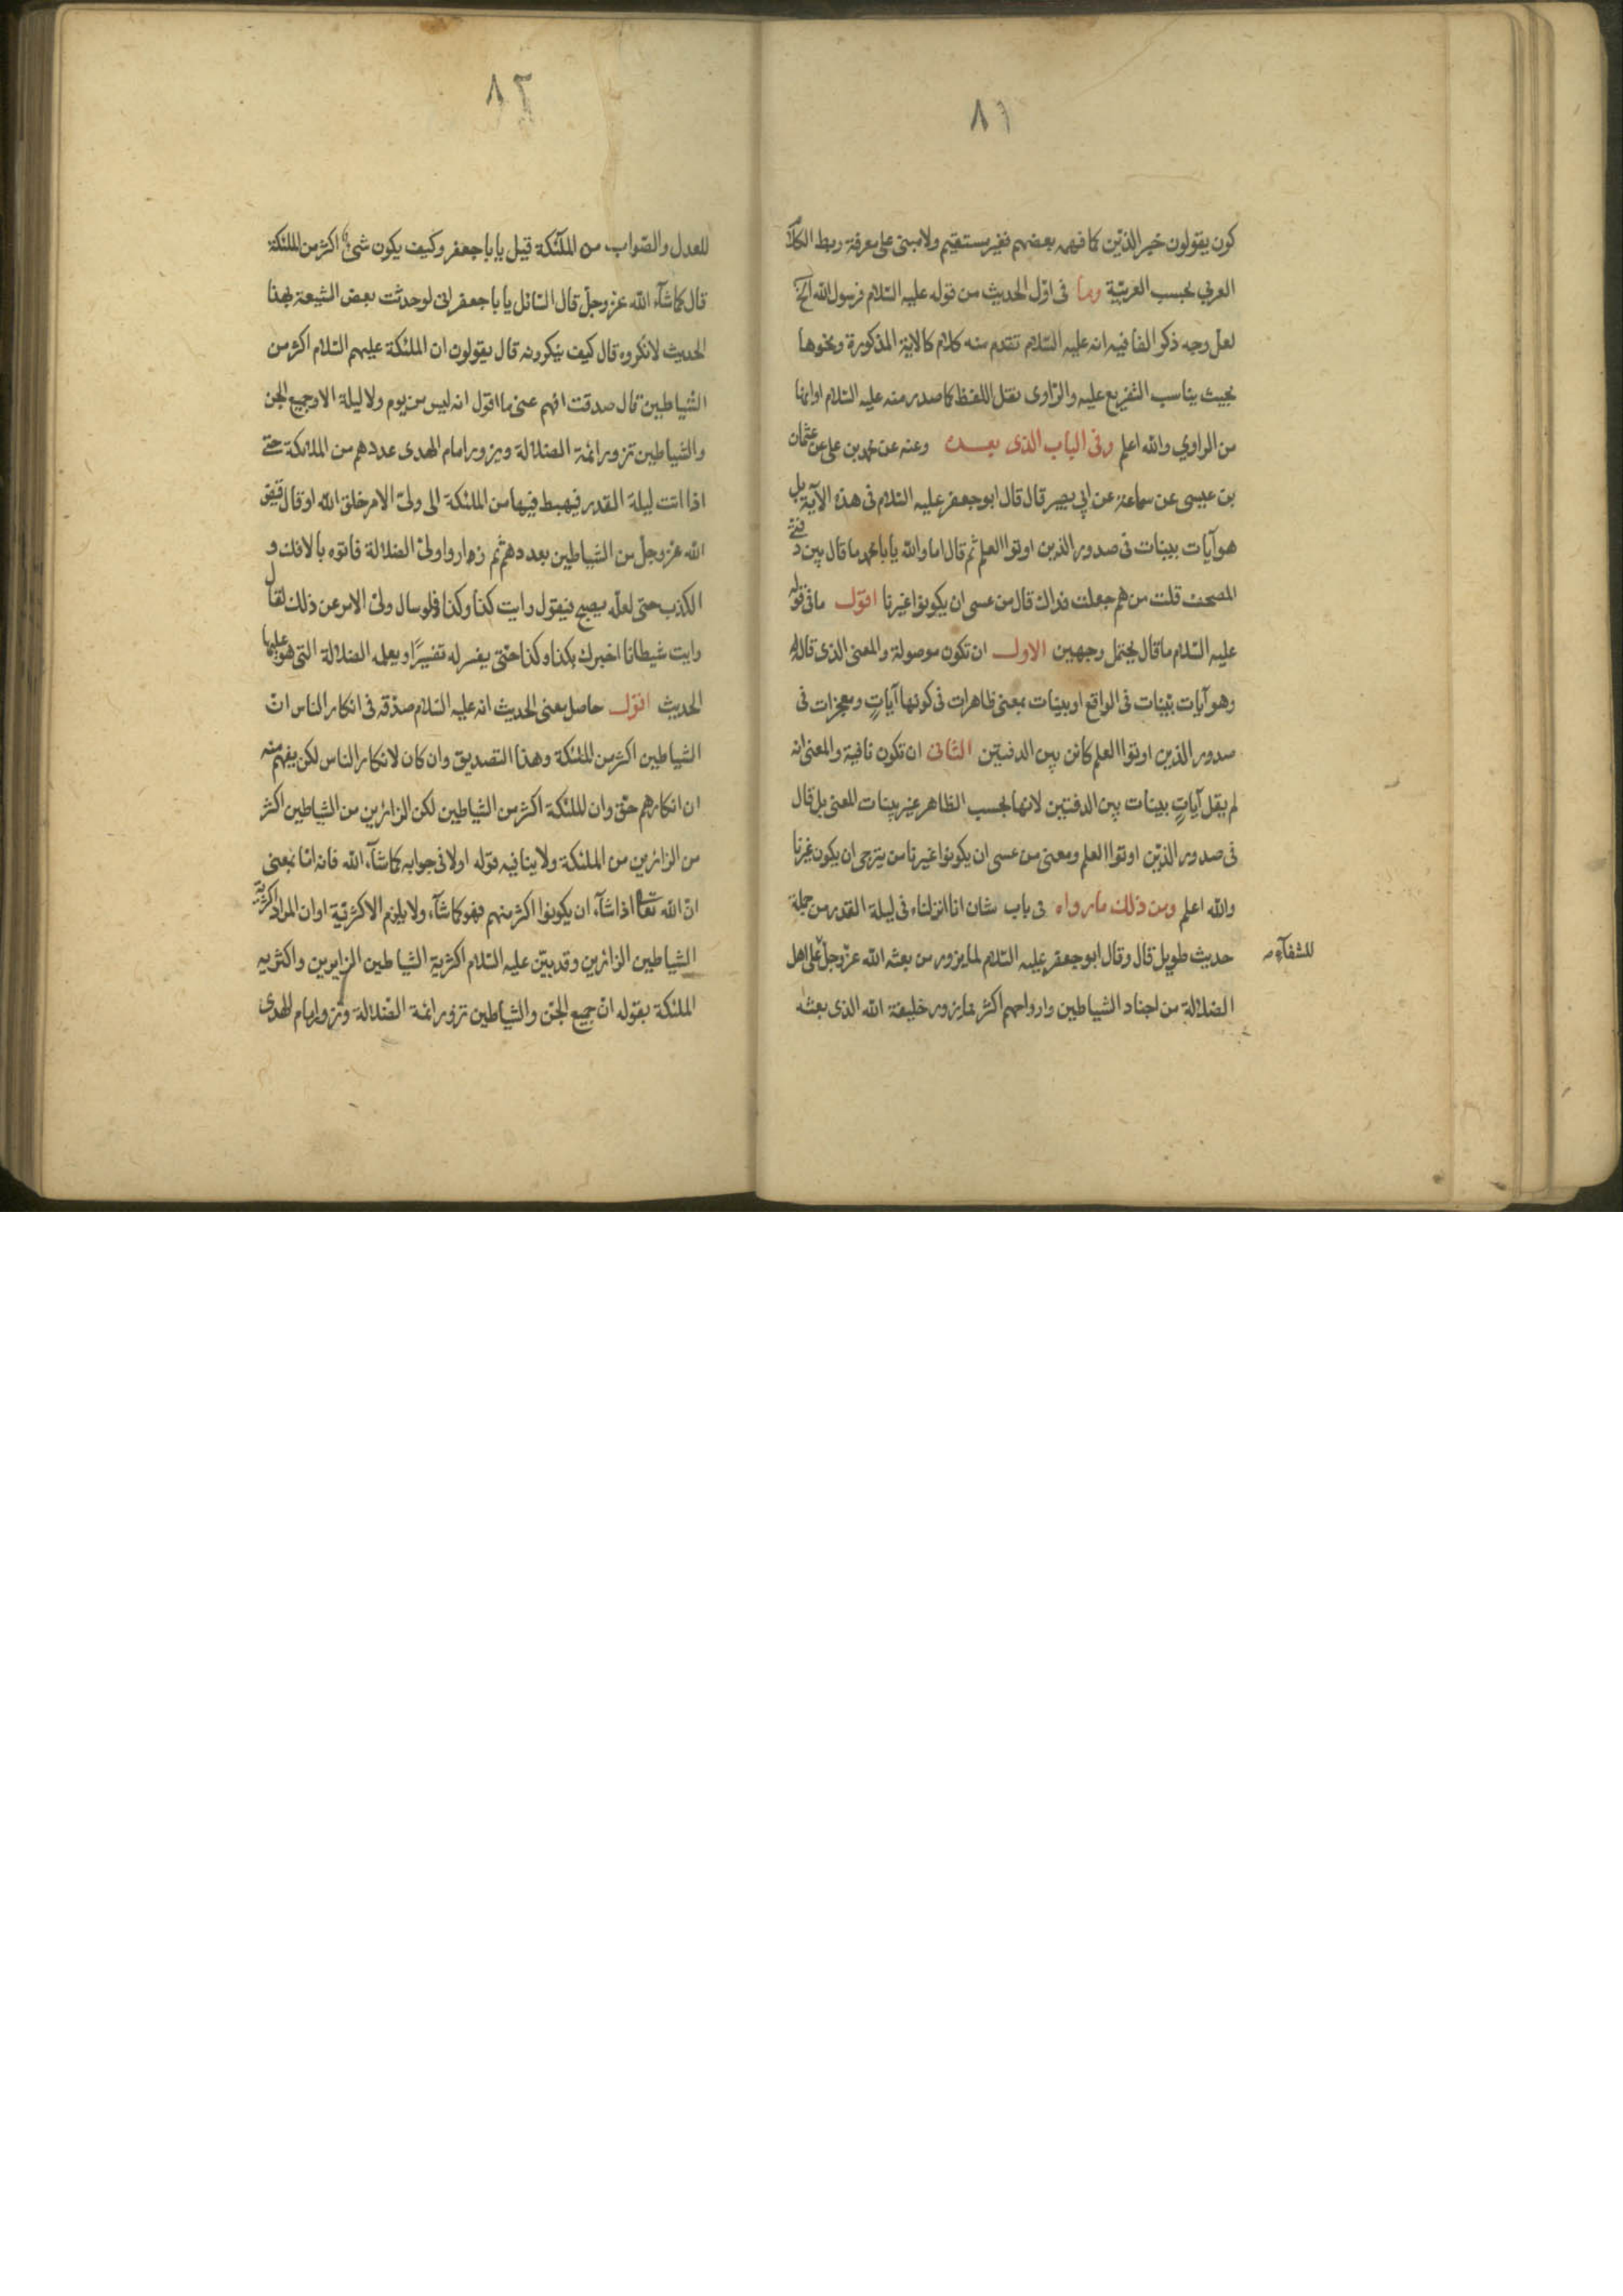 ٨١
كون يقولون خبر الذين كما فهمه بعضهم فغير مستقيم ولا مبنى على معرفة ربط الكلام
العربي بحسب العربيّة وما فى اوّل الحديث من قوله عليه السّلام فرسول الله الخ
لعل وجه ذكر الفا فيه انه عليه السّلام تقدم منه كلام كالاية المذكورة ونحوها
بحيث يناسب التفريع عليه والرّاوى نقل اللفظ كما صدر منه عليه السّلام او انها
من الراوي والله اعلم وفى الباب الذى بعده وعنه عن محمد بن على عن عثمان
بن عيسى عن سماعة عن ابي بصير قال قال ابو جعفر عليه السّلام فى هذه الآية بل
هو آيات بينات فى صدور الذين اوتوا العلم ثم قال اما والله يا با محمد ما قال بين دفتى
المصحف قلت من هم جعلت فداك قال من عسى ان يكونوا غيرنا اقول ما فى قوله
عليه السّلام ما قال يحتمل وجهين الاول ان تكون موصولة والمعنى الذى قاله
وهو آيات بيّنات فى الواقع او بينات بمعنى ظاهرات فى كونها آياتٍ ومعجزات فى
صدور الذين اوتوا العلم كائن بين الدفتين الثانى ان تكون نافية والمعنى انه
لم يقل آياتٍ بينات بين الدفتين لانها بحسب الظاهر غير بينات المعنى بل قال
فى صدور الذين اوتوا العلم ومعنى من عسى ان يكونوا غيرنا من يترجى ان يكون غيرنا
والله اعلم ومن ذلك ما رواه فى باب شان انا انزلناه فى ليلة القدر من جملة
حديث طويل قال وقال ابو جعفر عليه السّلام لما يزور من بعثه الله عزّ وجلّ للشقآء على اهل
الضلالة من اجناد الشياطين وارواحهم اكثر مما يزور خليفة الله الذى بعثه
٨٢
للعدل والصّواب من الملآئكة قيل يا با جعفر وكيف يكون شئ اكثر من الملئكة
قال كما شآء الله عز وجلّ قال السّائل يا با جعفر انى لو حدثت بعض الشيعة بهذا
الحديث لانكروه قال كيف ينكرونه قال يقولون ان الملئكة عليهم السّلام اكثر من
الشياطين قال صدقت افهم عنى ما اقول انه ليس من يوم ولا ليلة الا وجميع الجن
والشياطين تزور ائمة الضلالة ويزور امام الهدى عددهم من الملائكة حتى
اذا اتت ليلة القدر فيهبط فيها من الملئكة الى ولىّ الامر خلق الله او قال قيض
الله عز وجلّ من الشياطين بعددهم ثم زاروا ولىّ الضلالة فاتوه بالافك و
الكذب حتى لعلّه يصبح فيقول رايت كذا وكذا فلو سال ولىّ الامر عن ذلك لقال
رايت شيطانا اخبرك بكذا وكذا حتى يفسر له تفسيرًا ويعلمه الضلالة التى هو عليها
الحديث اقول حاصل معنى الحديث انه عليه السّلام صدّقه فى انكار الناس انّ
الشياطين اكثر من الملئكة وهذا التصديق وان كان لانكار الناس لكن يفهم منه
ان انكارهم حق وان الملئكة اكثر من الشياطين لكن الزائرين من الشياطين اكثر
من الزائرين من الملئكة ولا ينافيه قوله اولا فى جوابه كما شآء الله فانه امّا بمعنى
انّ الله تعالى اذا شآء ان يكونوا اكثر منهم فهو كما شآء ولا يلزم الاكثريّة او ان المراد اكثرية
الشياطين الزائرين وقد بيّن عليه السّلام اكثرية الشياطين الزايرين واكثرية
الملئكة بقوله انّ جميع الجنّ والشياطين تزور ائمة الضلالة ويزور امام الهدى